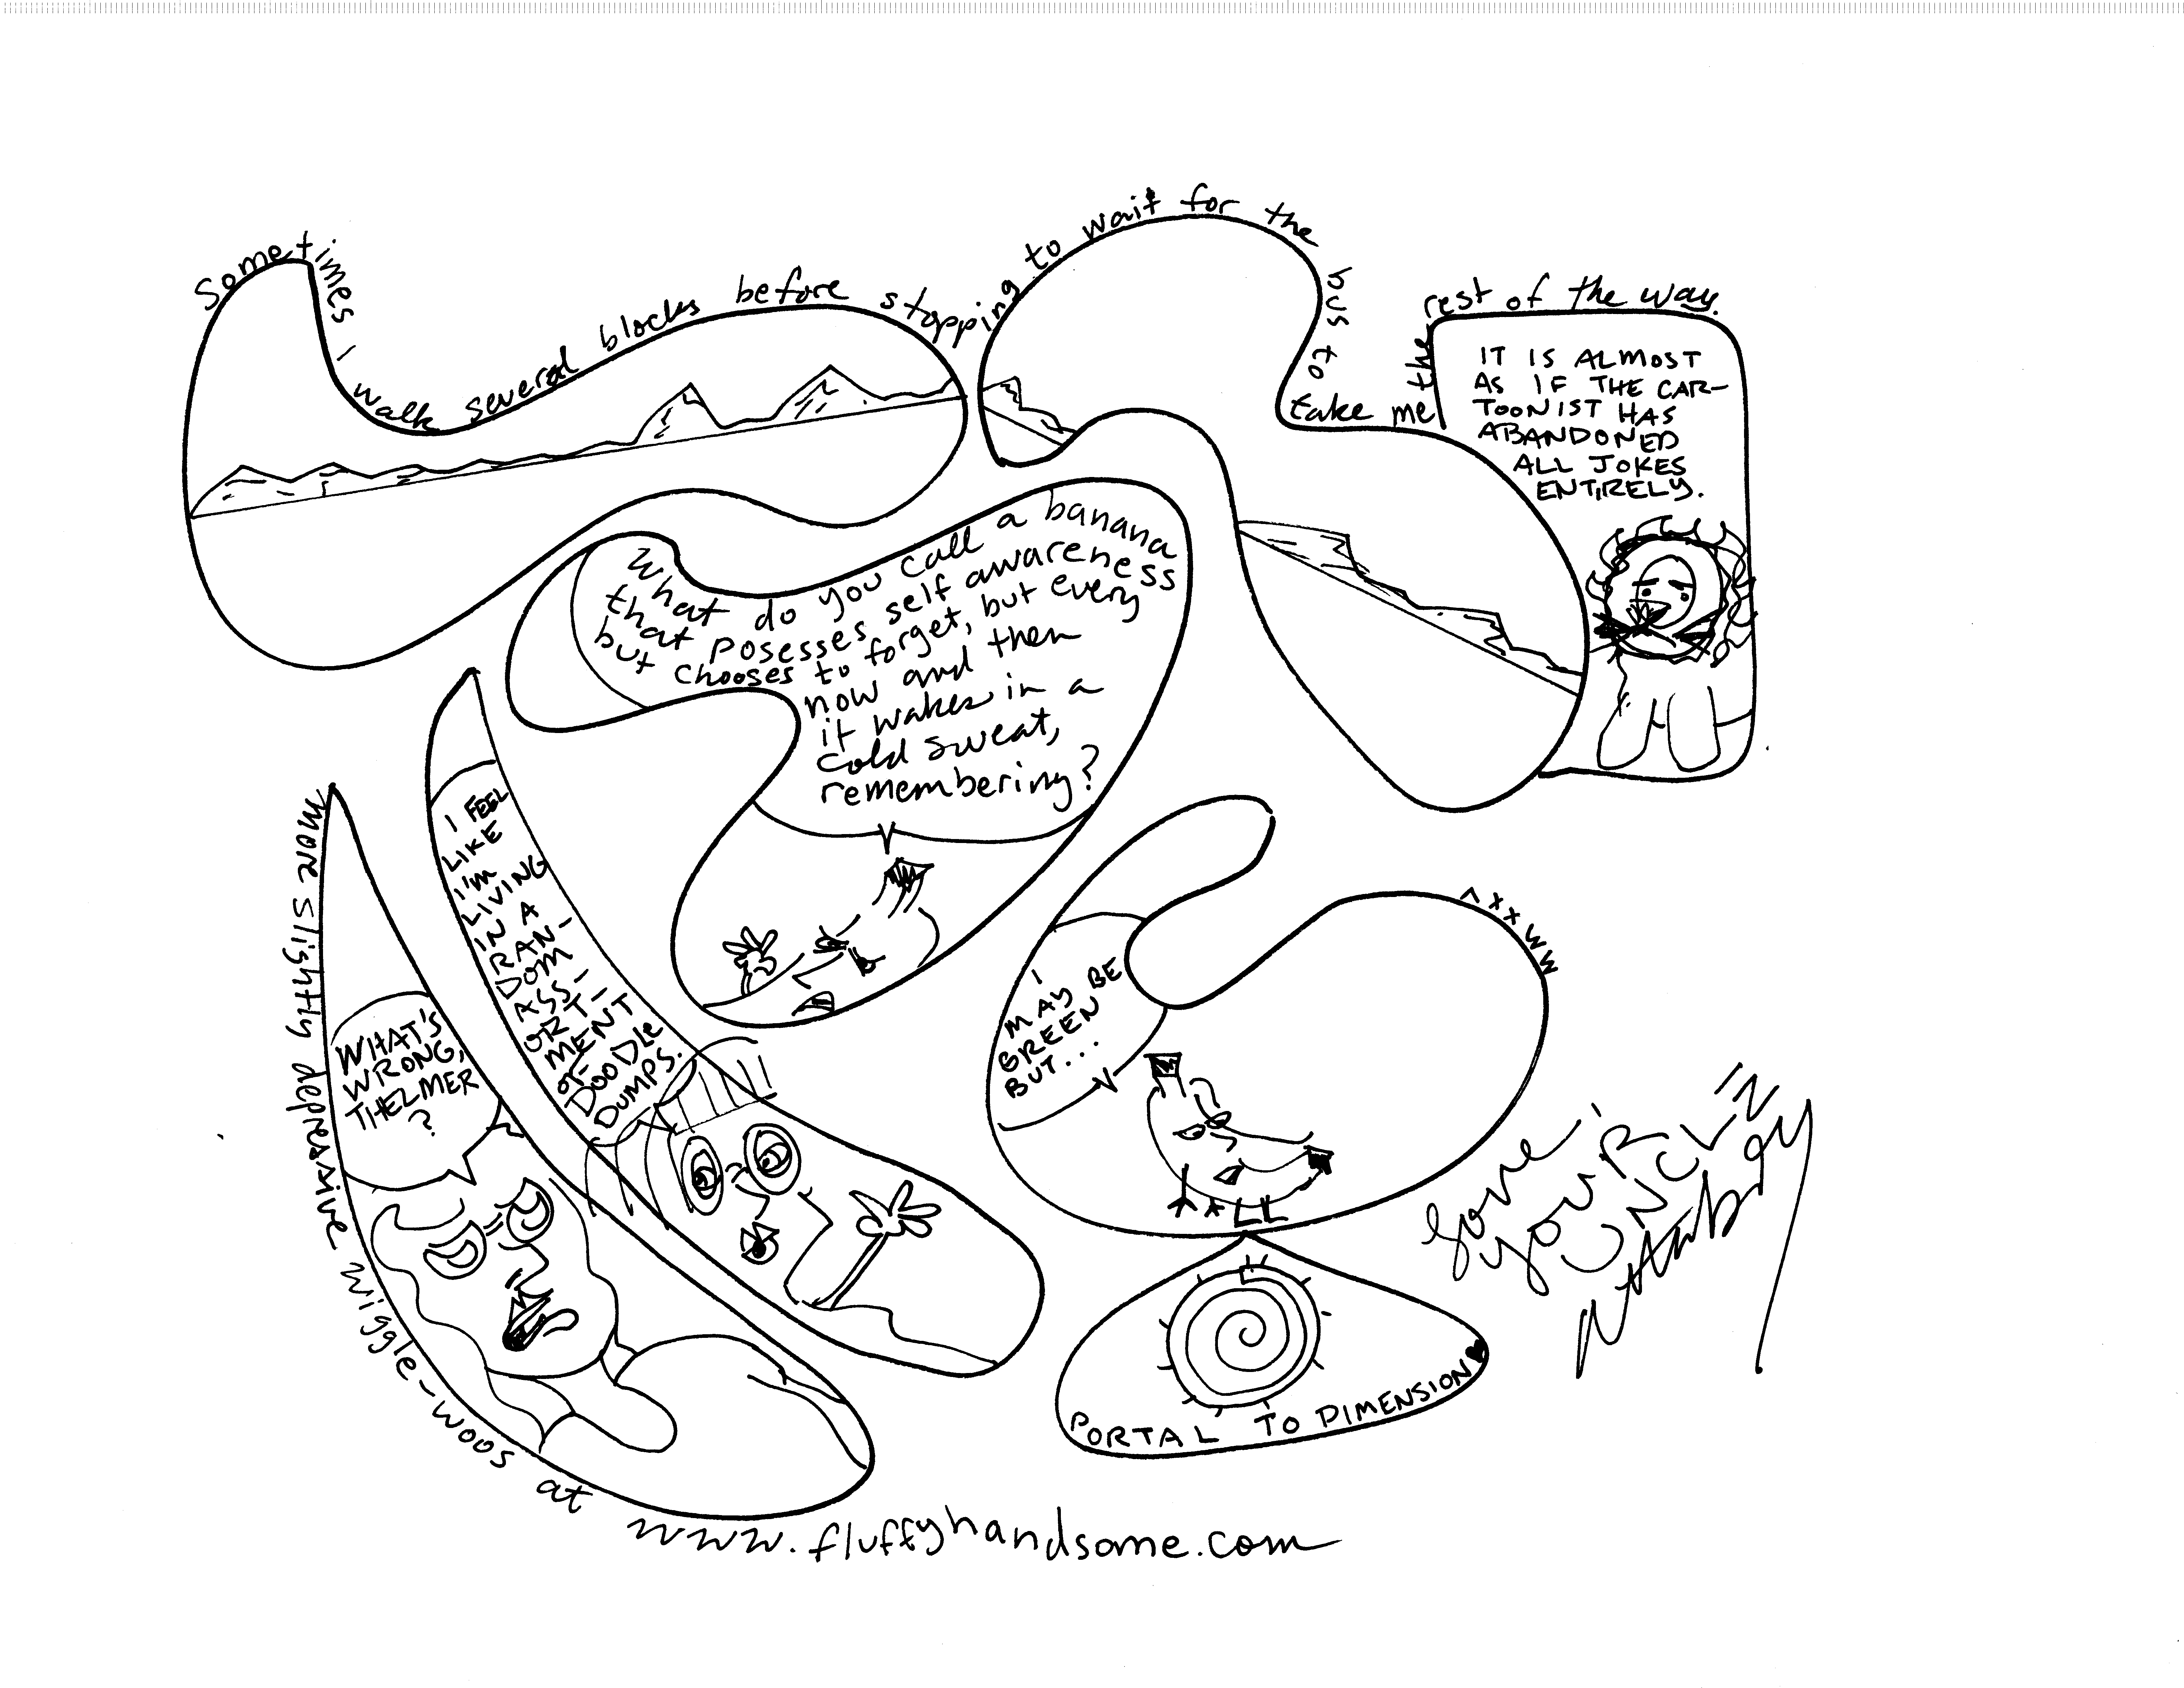 Sometimes I walk several blocks before stopping to wait for the bus to take me the rest of the way.
IT IS ALMOST
AS IF THE CAR-
TOONIST HAS
ABANDONED
ALL JOKES
ENTIRELY.
What do you call a banana
that posesses self awareness
but chooses to forget, but every
now and then
it wakes in a
cold sweat,
remembering?
I FEEL
LIKE
I'M
LIVING
IN A
RAN-
DOM
ASS-
ORT-
MENT
OF
DOODLE
DUMPS.
WHAT'S
WRONG,
THELMER
?
I
MAY BE
GREEN
BUT...
PORTAL TO DIMENSION ♥
Love,
YOUR
UNCLE
more slightly depressive wiggle-woos at
www.fluffyhandsome.com